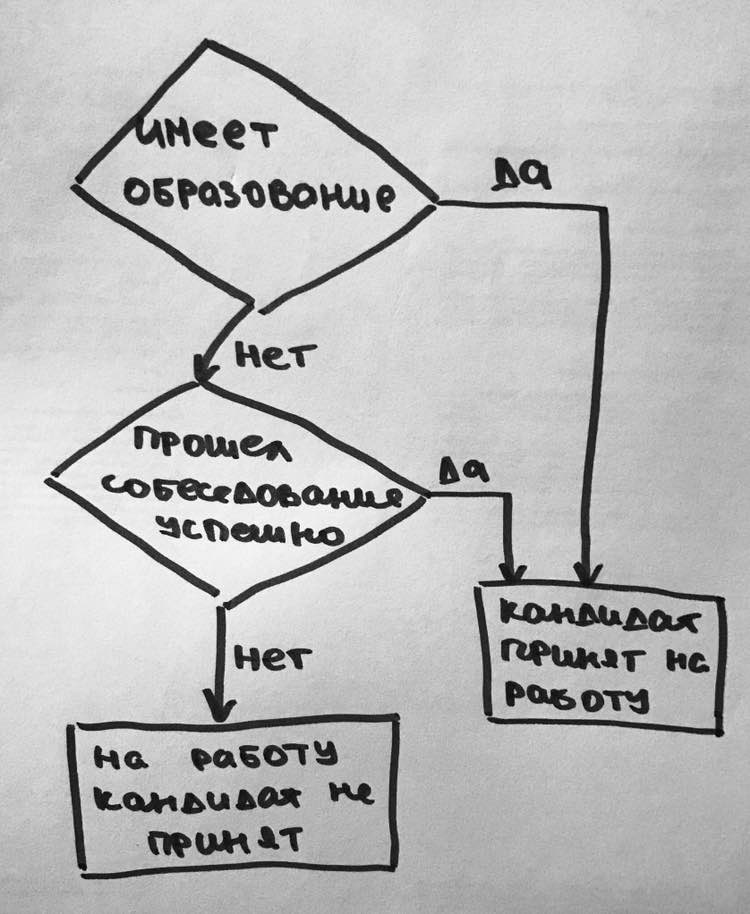 имеет
образование
да
нет
прошел
собеседование
успешно
да
нет
кандидат
принят на
работу
на работу
кандидат не
принят